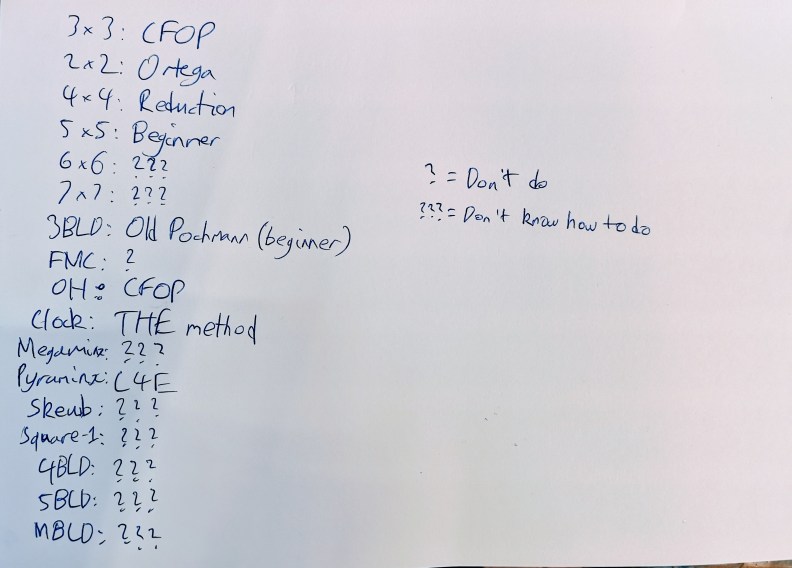 3x3: CFOP
2x2: Ortega
4x4: Reduction
5x5: Beginner
6x6: ???
7x7: ???
3BLD: Old Pochmann (beginner)
FMC: ?
OH: CFOP
Clock: THE method
Megaminx: ???
Pyraminx: L4E
Skewb: ???
Square-1: ???
4BLD: ???
5BLD: ???
MBLD: ???
? = Don't do
??? = Don't know how to do